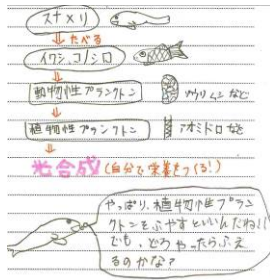 スナメリ
⇓ たべる
イワシ、コノシロ
⇓
動物性プランクトン ゾウリムシなど
⇓
植物性プランクトン アオミドロなど
⇓
光合成(自分で栄養をつくる!)
やっぱり、植物性プラン
クトンをふやすといいんだね!!
でも、どうやったらふえ
るのかな?